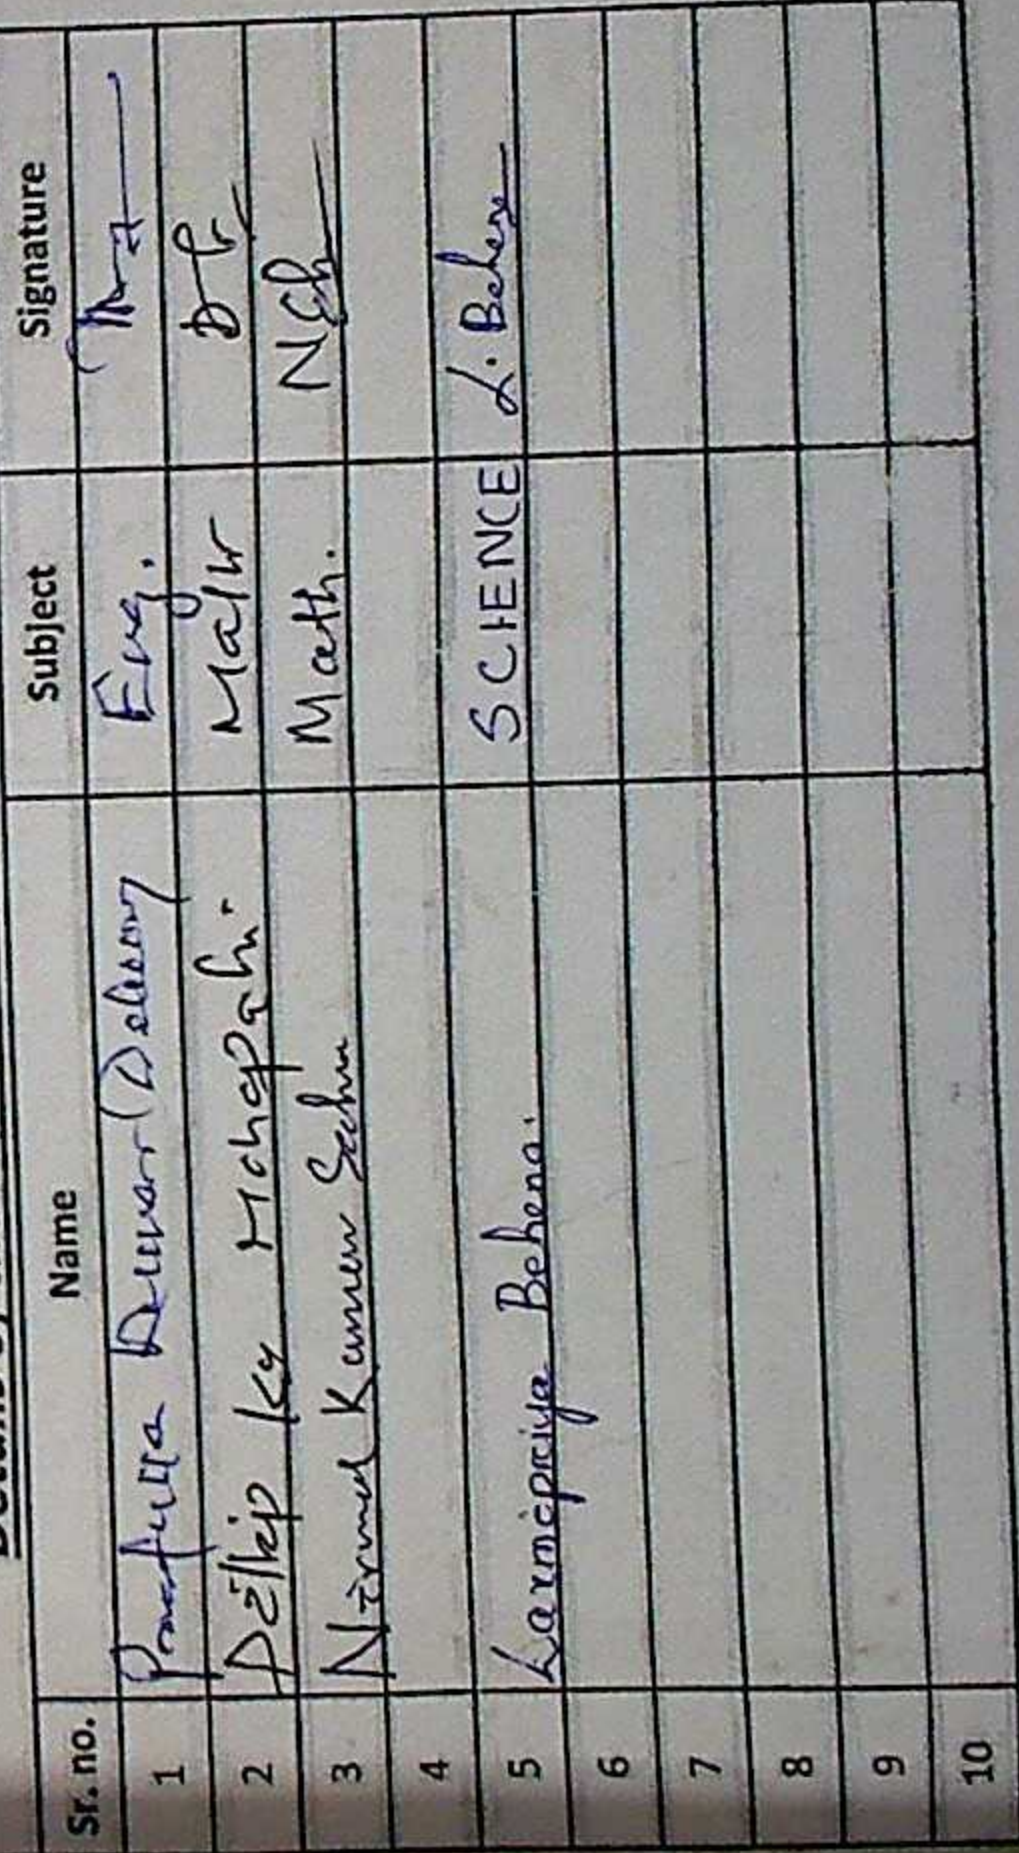 Sr. no. Name Subject Signature
1 Prafulla Kumar Eng.
2 Dillip Ky Mohapatra. Math
3 Nirmal Kumar Sahu Math.
4
5 Laxmipriya Behera. SCIENCE L. Behera
6
7
8
9
10